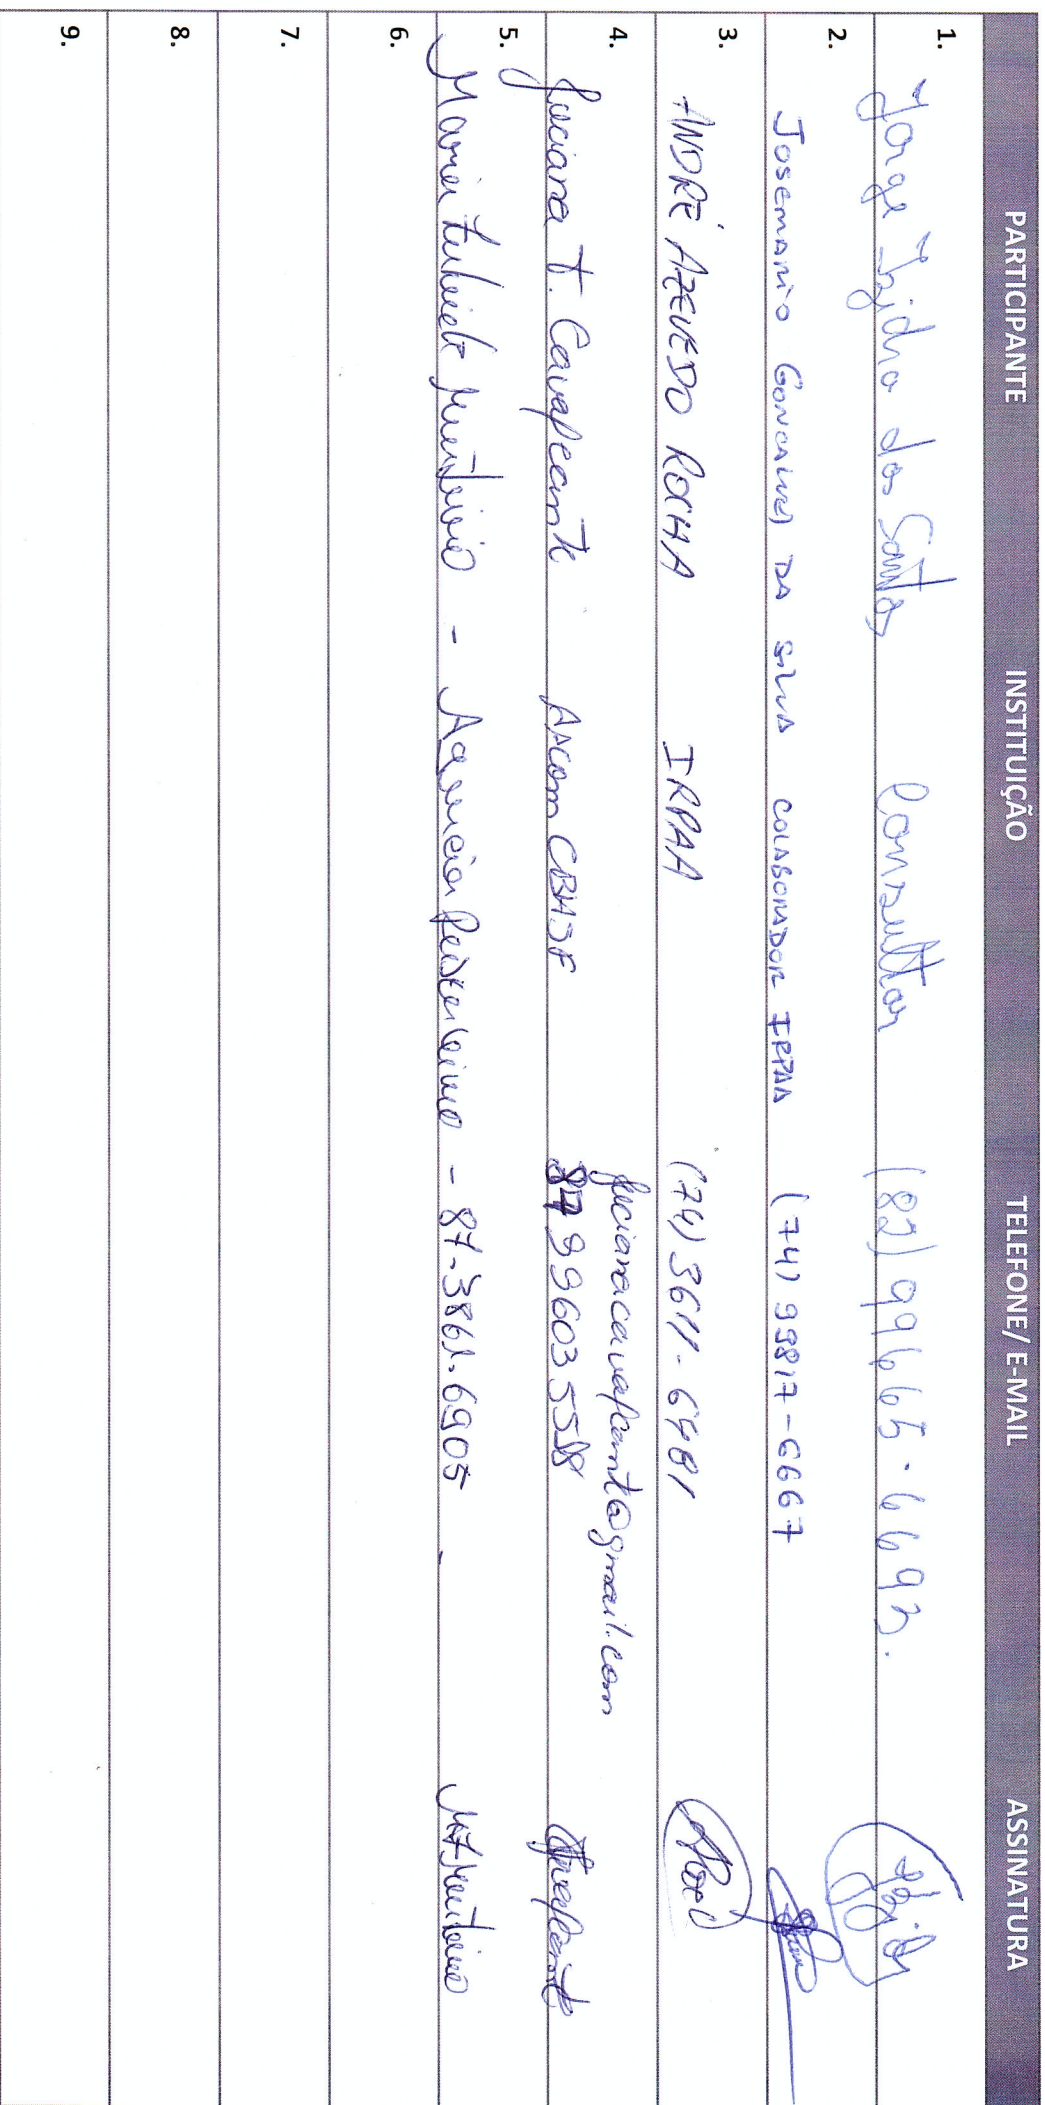 PARTICIPANTE INSTITUIÇÃO TELEFONE/ E-MAIL ASSINATURA
1. Jorge Izidro dos Santos Consultor (82) 99665-6693.
2. Josemario Goncalves DA Silva COLABORADOR IRPAA (74) 99817-6667
3. ANDRÉ AZEVEDO ROCHA IRPAA (74) 3611-6481
lucianacavalcante@gmail.com
4. Luciana T. Cavalcante Ascom CBHSF 87 99603 5538
5. Maria Monteiro - Agencia - 87-3861.6905 -
6.
7.
8.
9.